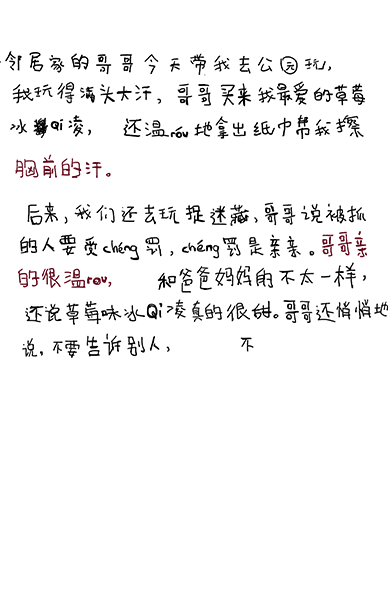 邻居家的哥哥今天带我去公园玩,
我玩得满头大汗,哥哥买来我最爱的草莓
冰Qi凌,还温róu地拿出纸巾帮我擦
胸前的汗。
后来,我们还去玩捉迷藏,哥哥说被抓
的人要受chéng罚,chéng罚是亲亲。哥哥亲
的很温rou,和爸爸妈妈的不太一样,
还说草莓味冰Qi凌真的很甜。哥哥还悄悄地
说,不要告诉别人,不